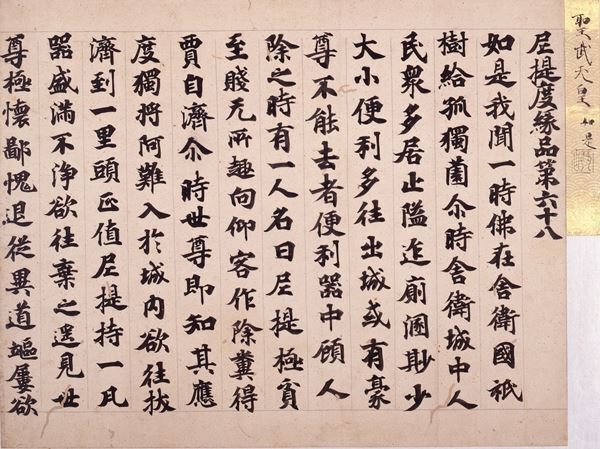 聖武天皇 如是
尼提度緣品第六十八
如是我聞一時佛在舍衛國祇
樹給孤獨薗尒時舍衛城中人
民衆多居止隘迮廁溷尠少
大小便利多往出城或有豪
尊不能去者便利器中顧人
除之時有一人名曰尼提極貧
至賤无所趣向仰客作除糞得
賈自濟尒時世尊即知其應
度獨將阿難入於城內欲往拔
濟到一里頭正值尼提持一凡
器盛滿不淨欲往棄之遥見世
尊極懷鄙愧退從異道嫗屢欲